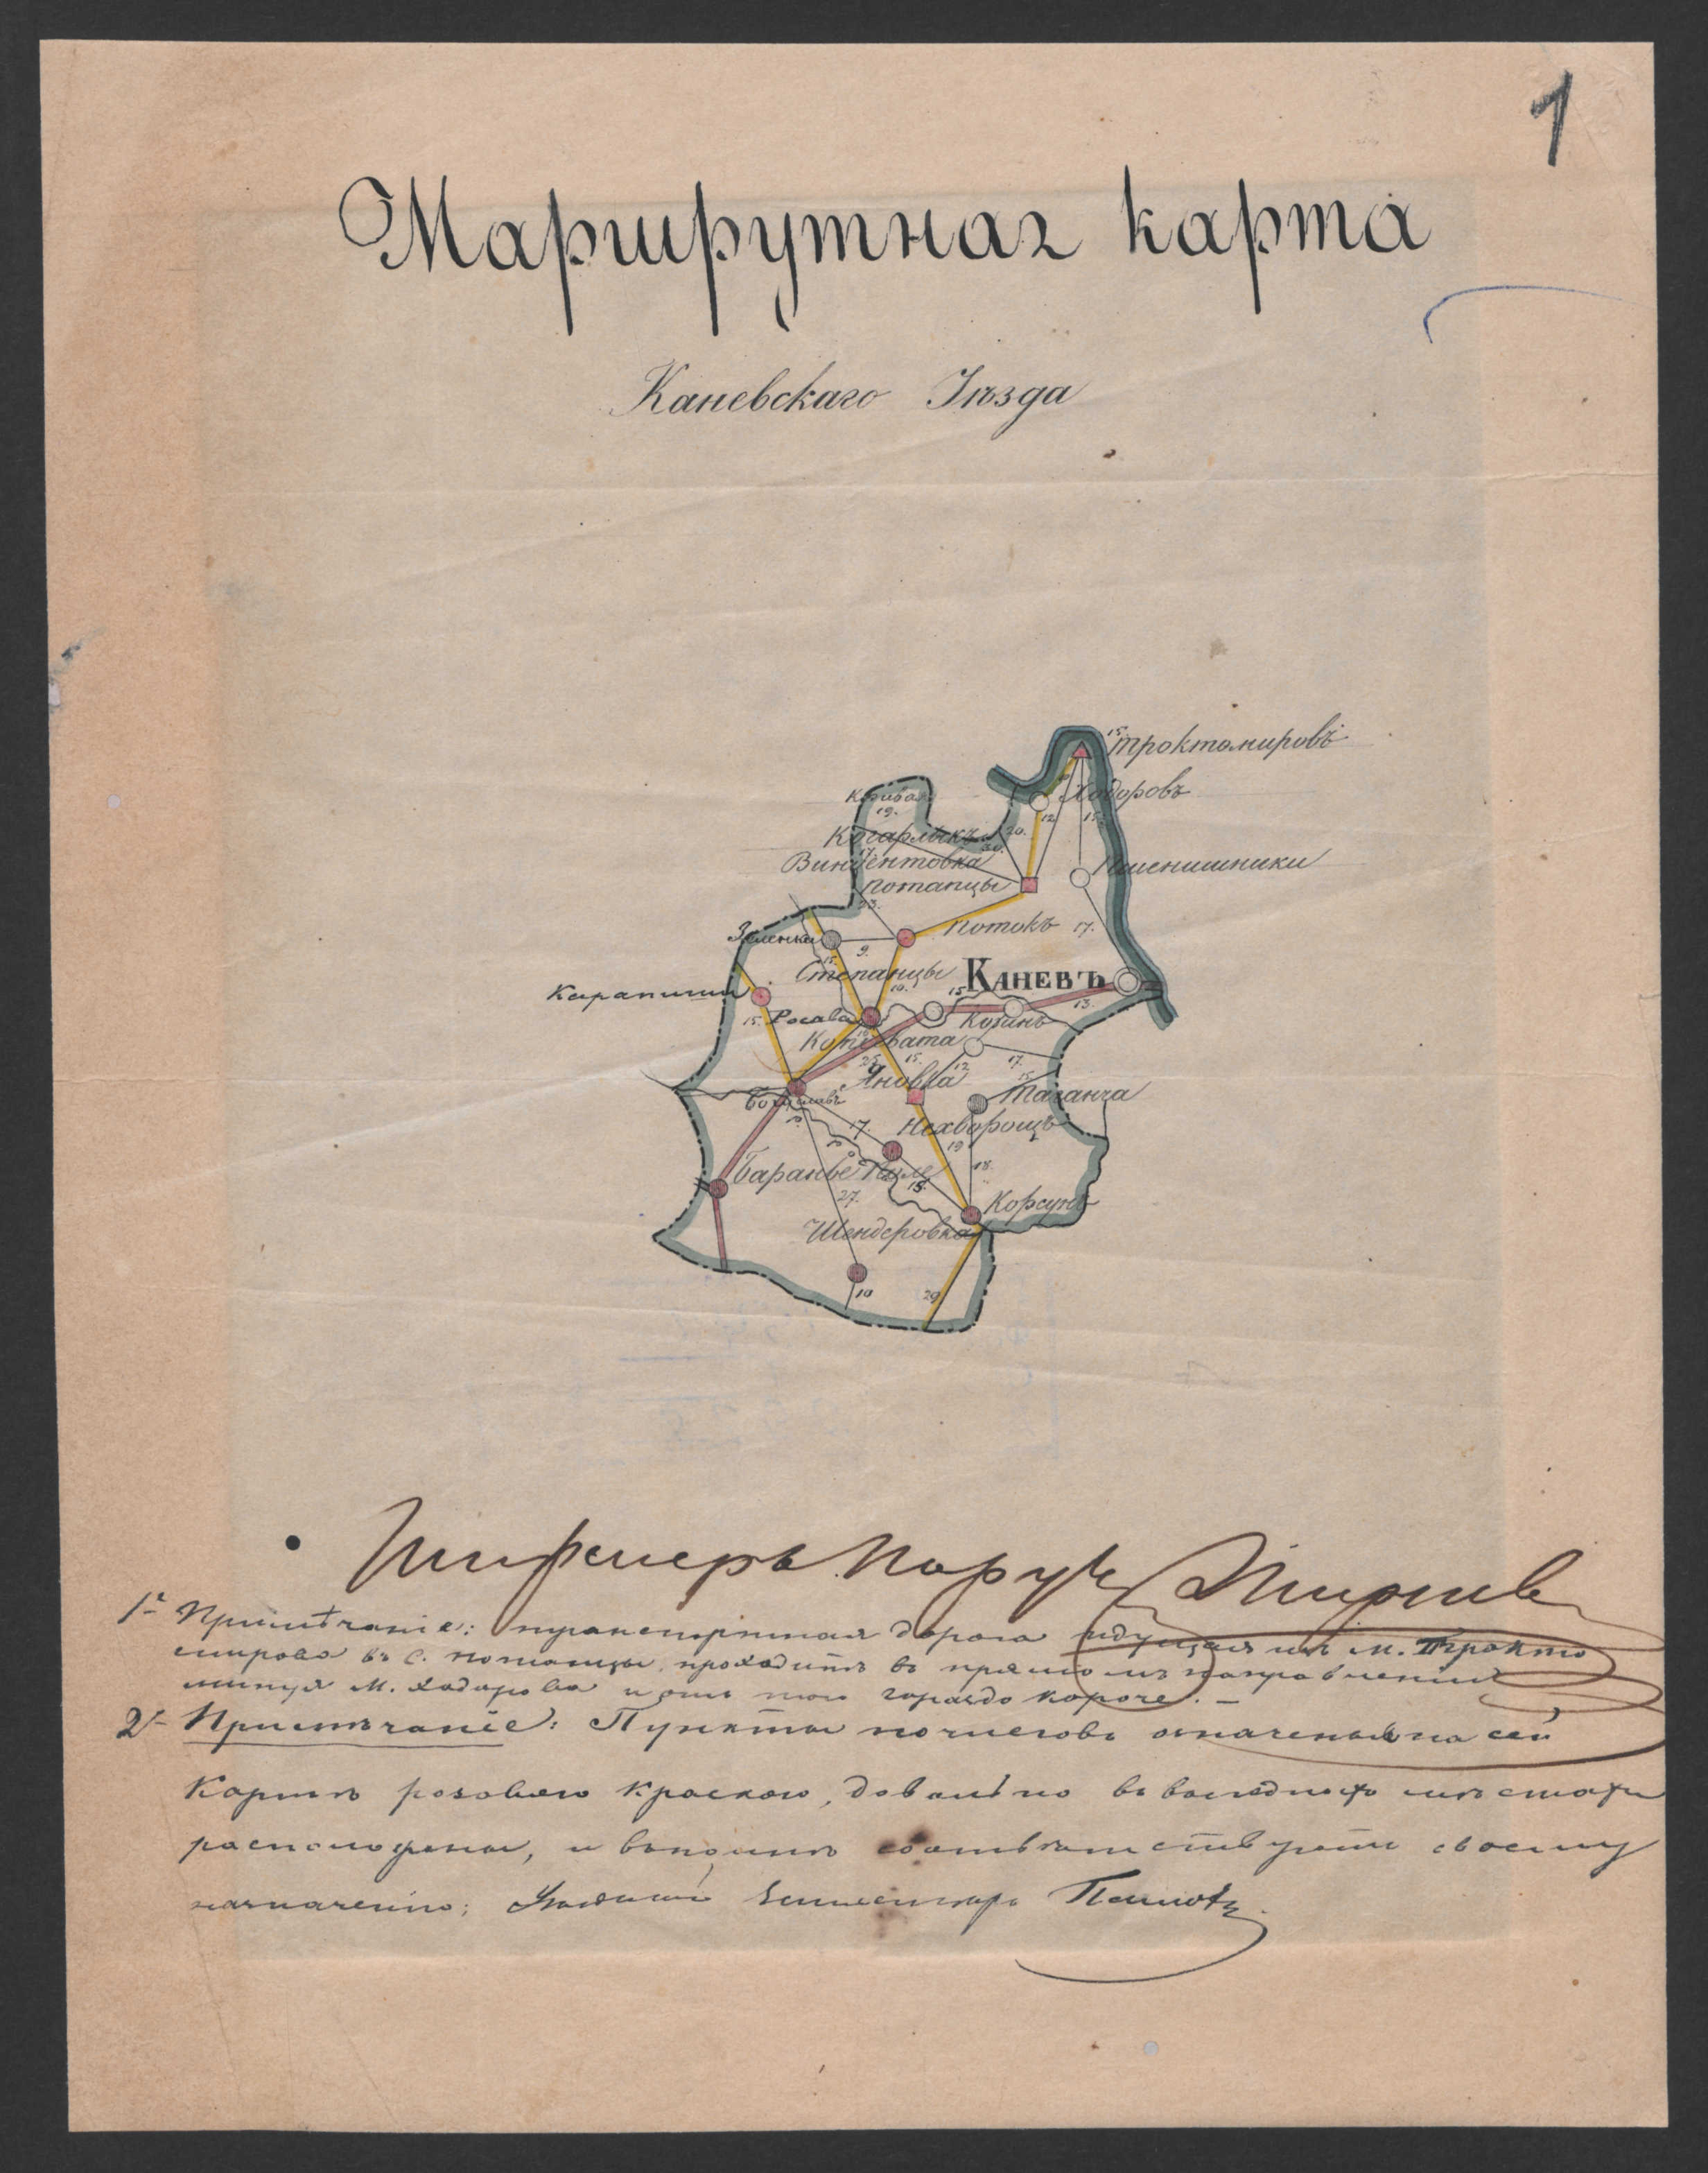 1
Маршрутная карта
Каневскаго Уѣзда
15.
Трактомировъ
Ходоровъ
Кагарлыкъ
19.
12
15.
20.
Винцентовка
Пшенишники
Потапцы
23.
Потокъ
17.
Зеленьки
9.
Степанцы
КАНЕВЪ
Карапиши
15.
10.
15
13.
Росава
Козинъ
25
15.
12
17.
Яновка
15
Таганча
Богуславъ
17.
Нехворощь
19
18.
Баранье Поле
15.
27.
Корсунь
Шендеровка
10
29
Инженеръ Поруч
1е Примѣчаніе: транспортная дорога идущая изъ м. Тракто
мирова въ с. Потапцы, проходитъ въ прямомъ направленіи
минуя м. Ходорова и гораздо короче. —
2е Примѣчаніе: Пункты ночлеговъ означенные на сей
Картѣ розовою краскою, довольно въ
расположены, и вполнѣ соотвѣтствуютъ своему
назначенію; Уѣздный